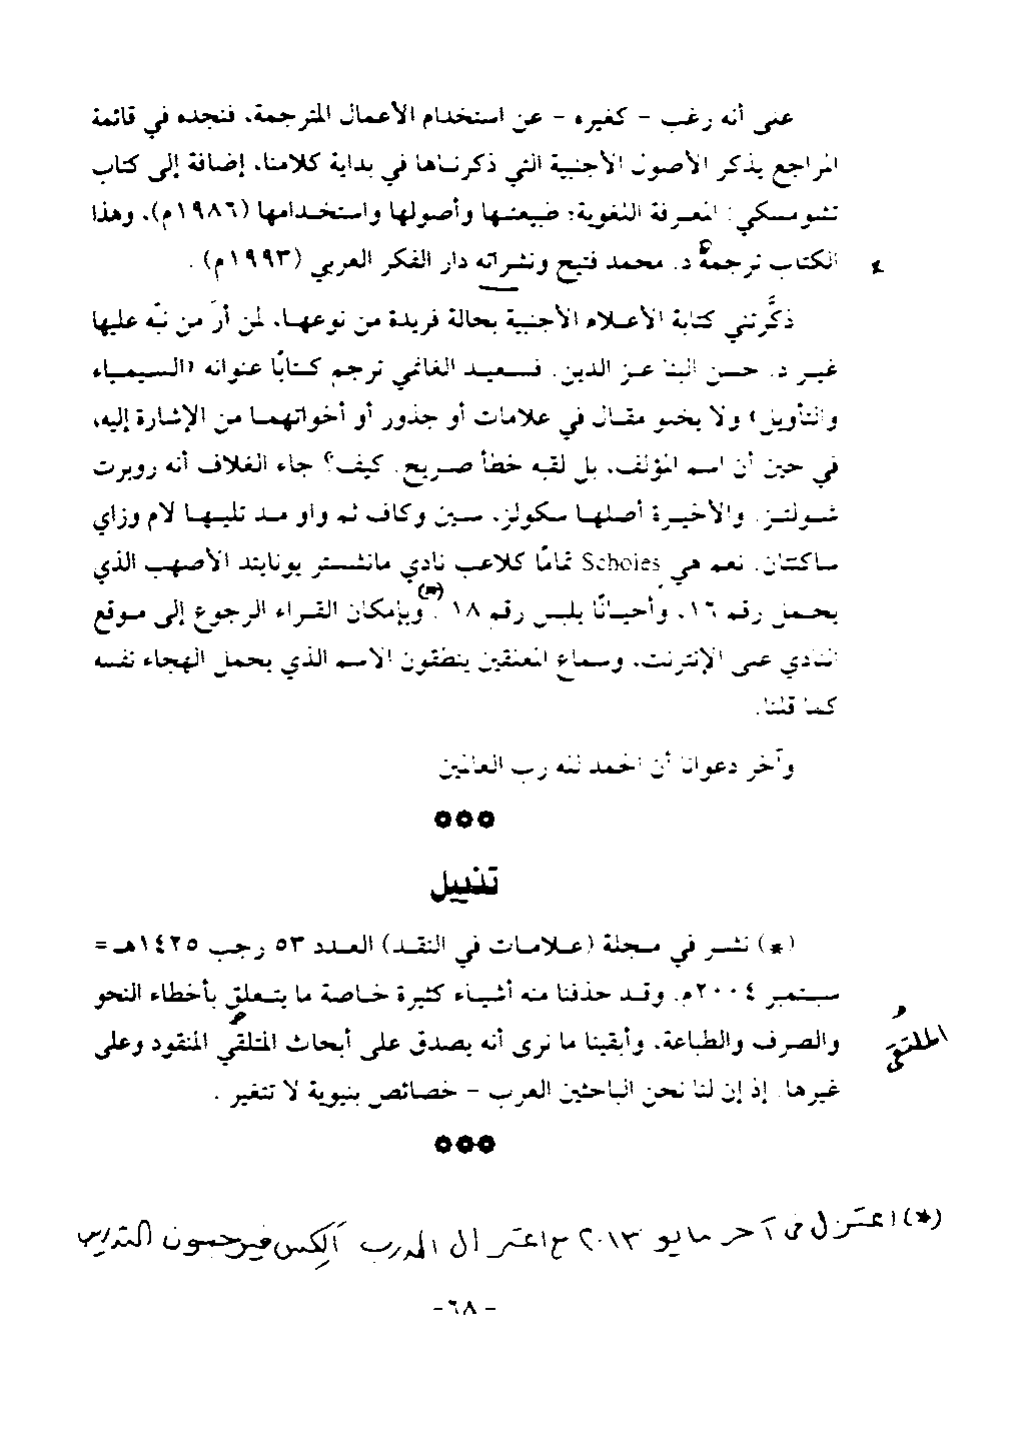 على أنه رغب – كغيره – عن استخدام الأعمال المترجمة، فنجده في قائمة
المراجع يذكر الأصول الأجنبية التي ذكرناها في بداية كلامنا، إضافة إلى كتاب
تشومسكي: المعرفة اللغوية: طبيعتها وأصولها واستخدامها (١٩٨٦م)، وهذا
الكتاب ترجمه د. محمد فتيح ونشرته دار الفكر العربي (١٩٩٣م).
ذكَّرتني كتابة الأعلام الأجنبية بحالة فريدة من نوعها، لمن أرَ من نبّه عليها
غير د. حسن البنا عز الدين. فسعيد الغانمي ترجم كتابًا عنوانه «السيمياء
والتأويل» ولا يخلو مقال في علامات أو جذور أو أخواتهما من الإشارة إليه،
في حين أن اسم المؤلف، بل لقبه خطأ صريح. كيف؟ جاء الغلاف أنه روبرت
شولتز. والأخيرة أصلها سكولز. سين وكاف ثم واو مد تليها لام وزاي
ساكنتان. نعم هي Scholes تمامًا كلاعب نادي مانشستر يونايتد الأصهب الذي
يحمل رقم ١٦، وأحيانًا يلبس رقم ١٨(*). وبإمكان القراء الرجوع إلى موقع
النادي على الإنترنت، وسماع المعلقين ينطقون الاسم الذي يحمل الهجاء نفسه
كما قلنا.
وآخر دعوانا أن الحمد لله رب العالمين
تذييل
(*) نشر في مجلة (علامات في النقد) العدد ٥٣ رجب ١٤٢٥هـ =
سبتمبر ٢٠٠٤م. وقد حذفنا منه أشياء كثيرة خاصة ما يتعلق بأخطاء النحو
والصرف والطباعة، وأبقينا ما نرى أنه يصدق على أبحاث المتلقي المنقود وعلى
الملتقَى
غيرها. إذ إن لنا نحن الباحثين العرب – خصائص بنيوية لا تتغير.
(*) اعتزل في آخر مايو ٢٠١٣م مع اعتزال المدرب أليكس فيرجسون التدريس
-٦٨-